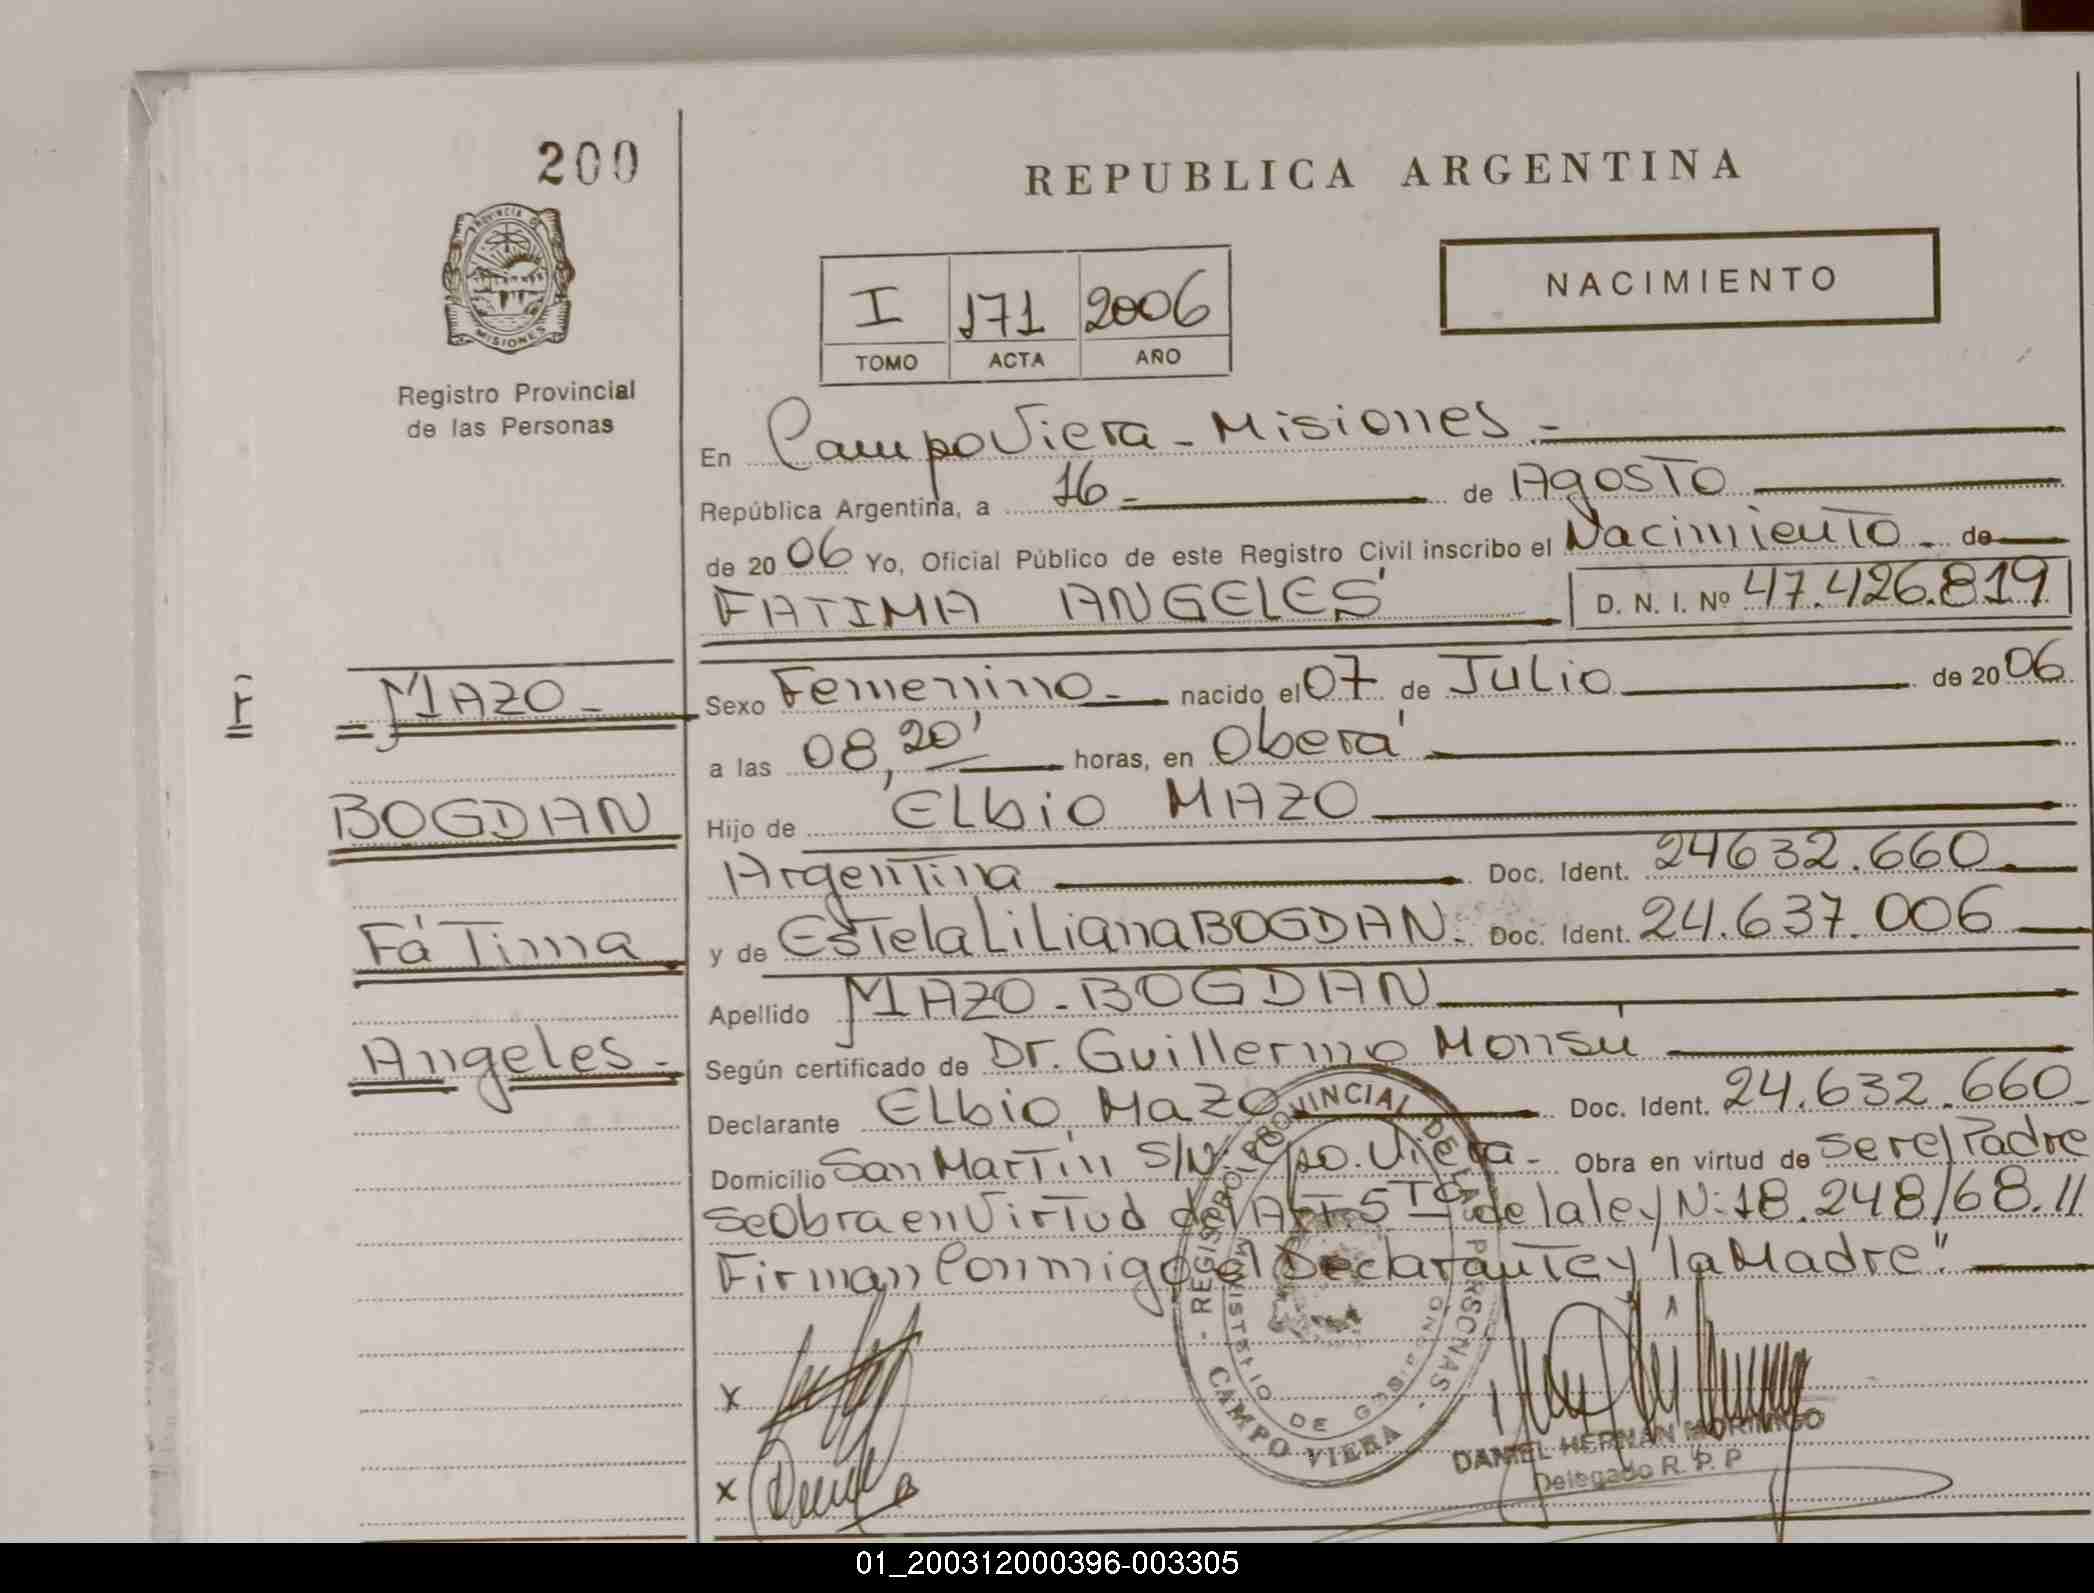 200
REPUBLICA ARGENTINA
PROVINCIA DE
MISIONES
NACIMIENTO
I 171 2006
TOMO ACTA AÑO
Registro Provincial
de las Personas
En Campo Viera - Misiones.-
República Argentina, a 16- de Agosto
de 2006 Yo, Oficial Público de este Registro Civil inscribo el Nacimiento - de
FATIMA ANGELES D. N. I. Nº 47.426.819
F MAZO - Sexo Femenino - nacido el 07 de Julio de 2006
a las 08,20' horas, en Oberá
BOGDAN Hijo de Elbio MAZO
Argentina Doc. Ident. 24632.660
Fátima y de Estela Liliana BOGDAN. Doc. Ident. 24.637.006
Apellido MAZO - BOGDAN
Angeles - Según certificado de Dr. Guillermo Monsú
Declarante Elbio Mazo Doc. Ident. 24.632.660
Domicilio San Martín S/N: Cpo. Viera - Obra en virtud de ser el Padre
Se Obra en Virtud del Art 5to de la ley N: 18.248/68.//
Firman Conmigo el Declarante y la Madre"
- REGISTRO PROVINCIAL DE LAS PERSONAS -
MINISTERIO DE GOBIERNO
CAMPO VIERA
X
X
DANIEL HERNAN MORINIGO
Delegado R. P. P
01_200312000396-003305